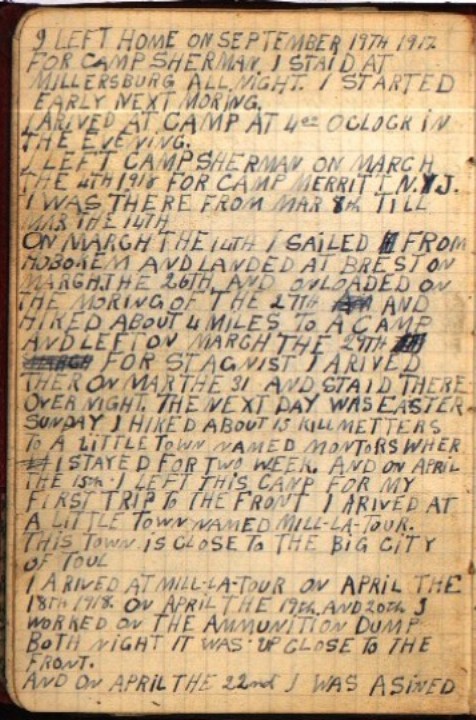 I LEFT HOME ON SEPTEMBER 19TH 1917
FOR CAMP SHERMAN. I STAID AT
MILLERSBURG ALL NIGHT. I STARTED
EARLY NEXT MORING.
I ARIVED AT CAMP AT 4ºº OCLOCK IN
THE EVENING.
I LEFT CAMPSHERMAN ON MARCH
THE 4TH 1918 FOR CAMP MERRITT N.Y.J.
I WAS THERE FROM MAR 8th TILL
MAR THE 14TH
ON MARCH THE 14TH I SAILED FROM
HOBOKEM AND LANDED AT BREST ON
MARCH THE 26TH AND ONLOADED ON
THE MORING OF THE 27TH AND
HIKED ABOUT 4 MILES TO A CAMP
AND LEFT ON MARCH THE 29TH
MARCH FOR STAGNIST I ARIVED
THER ON MAR THE 31 AND STAID THERE
OVER NIGHT. THE NEXT DAY WAS EASTER
SUNDAY I HIKED ABOUT 15 KILLMETTERS
TO A LITTLE TOWN NAMED MONTORS WHER
I STAYED FOR TWO WEEK. AND ON APRIL
THE 15th I LEFT THIS CANP FOR MY
FIRST TRIP TO THE FRONT I ARIVED AT
A LITTLE TOWN NAMED MILL-LA-TOUR.
THIS TOWN IS CLOSE TO THE BIG CITY
OF TOUL
I ARIVED AT MILL-LA-TOUR ON APRIL THE
18TH 1918. ON APRIL THE 19th AND 20th I
WORKED ON THE AMMUNITION DUMP
BOTH NIGHT IT WAS UP CLOSE TO THE
FRONT.
AND ON APRIL THE 22nd I WAS ASINED